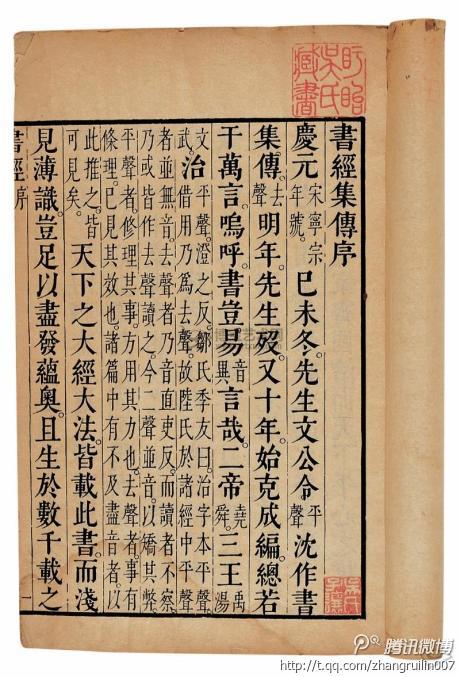 盱眙吳氏藏書
書經集傳序
慶元宋寧宗年號。己未冬。先生文公令平聲沈作書
集傳去聲明年。先生歿。又十年。始克成編。總若
干萬言。嗚呼。書豈易音異言哉。二帝堯舜三王禹湯
文武。治平聲。澄之反。鄒氏季友曰。治字本平聲。借用乃爲去聲。故陸氏於諸經中平聲
者並無音。去聲者乃音直吏反。而讀者不察。乃或皆作去聲讀之。今二聲並音。以矯其弊。
平聲者。修理其事。方用其力也。去聲者。事有條理。已見其效也。諸篇中有不及盡音者。以
此推之。皆可見矣。天下之大經大法。皆載此書。而淺
見薄識。豈足以盡發蘊奧。且生於數千載之
書經 序
一
腾讯微博
http://t.qq.com/zhangruilin007